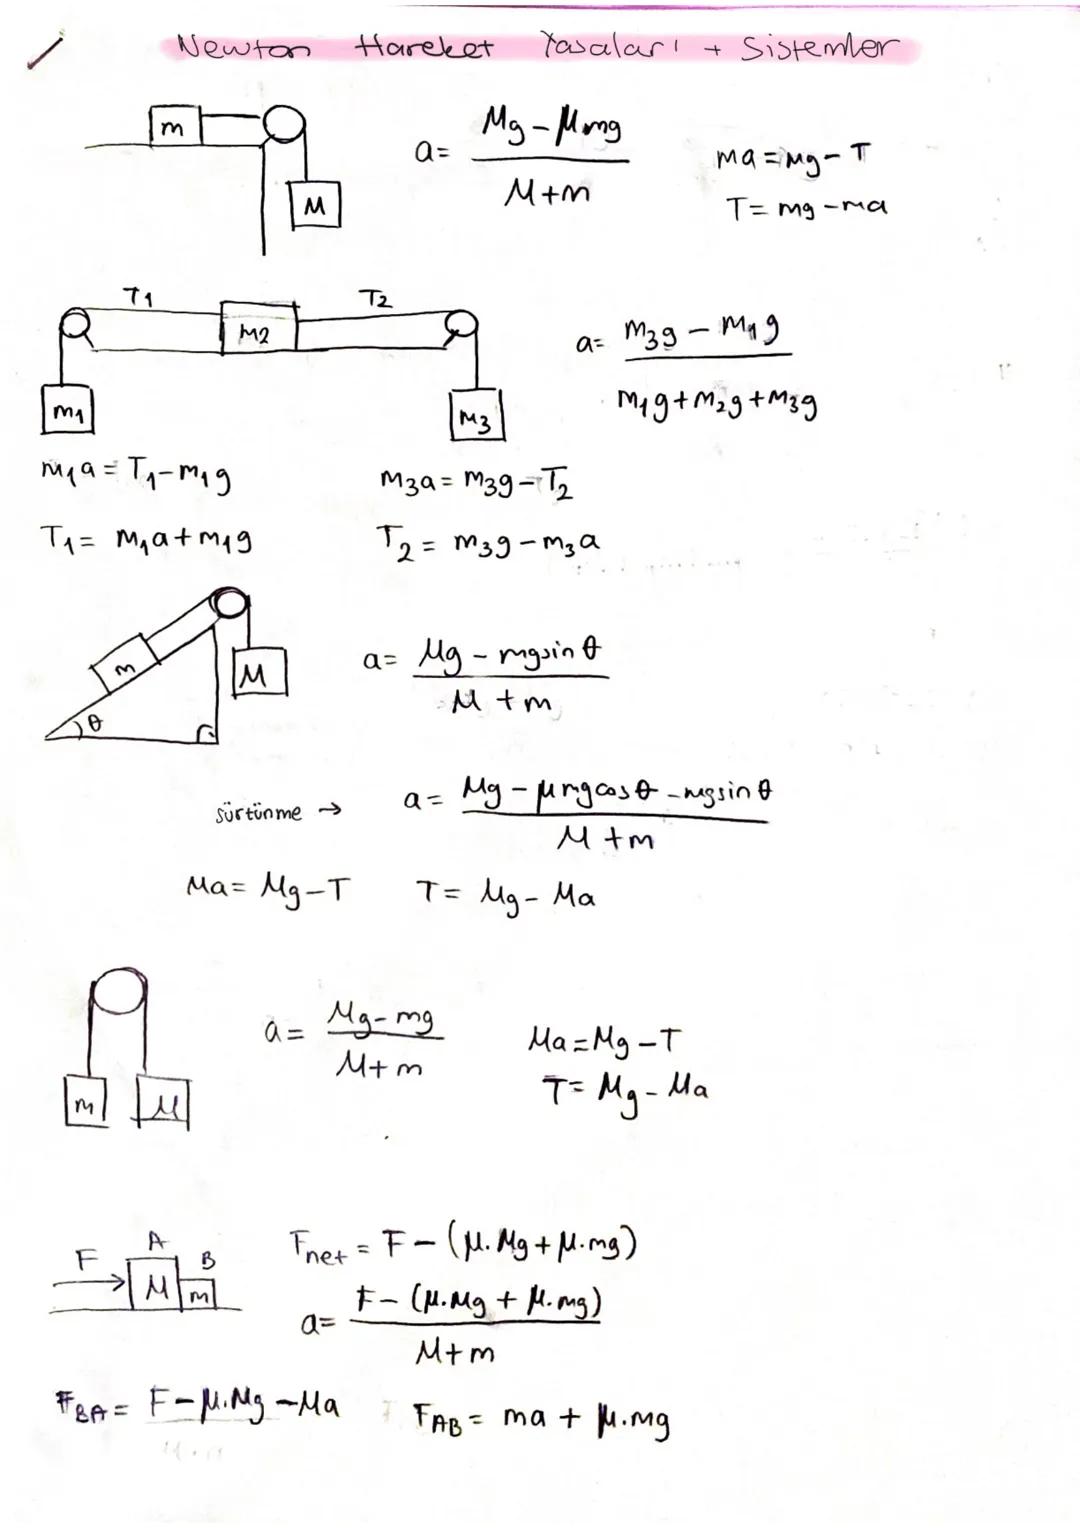 Newton Hareket Yasaları + Sistemler
m
M
a = (Mg - μmg) / (M+m)
ma = Mg - T
T = mg - ma
T1 T2
M2
m1
M3
a = (m3g - m1g) / (m1g + m2g + m3g)
m1a = T1 - m1g
m3a = m3g - T2
T1 = m1a + m1g
T2 = m3g - m3a
m
M
θ
a = (Mg - mgsinθ) / (M + m)
sürtünme → a = (Mg - μmgcosθ - mgsinθ) / (M + m)
Ma = Mg - T T = Mg - Ma
m M
a = (Mg - mg) / (M + m)
Ma = Mg - T
T = Mg - Ma
F A B
M m
Fnet = F - (μ.Mg + μ.mg)
a = (F - (μ.Mg + μ.mg)) / (M + m)
FBA = F - μ.Mg - Ma FAB = ma + μ.mg